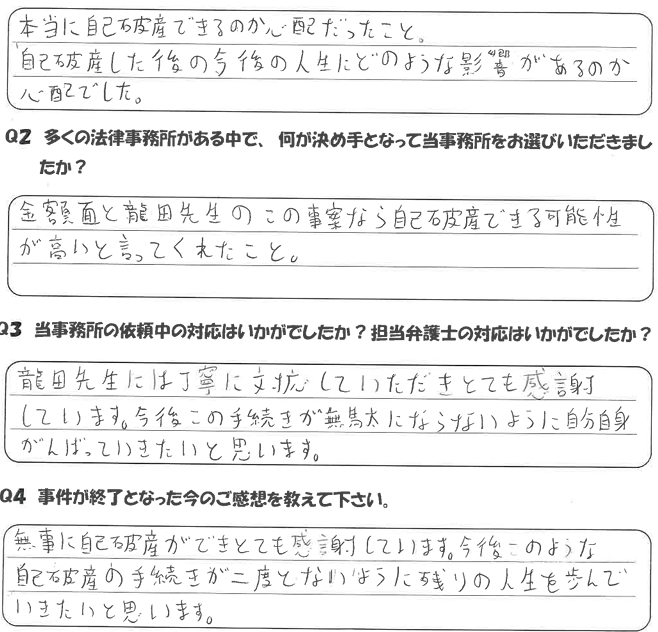 本当に自己破産できるのか心配だったこと。
自己破産した後の今後の人生にどのような影響があるのか
心配でした。
Q2 多くの法律事務所がある中で、何が決め手となって当事務所をお選びいただきまし
たか？
金額面と龍田先生のこの事案なら自己破産できる可能性
が高いと言ってくれたこと。
Q3 当事務所の依頼中の対応はいかがでしたか？担当弁護士の対応はいかがでしたか？
龍田先生には丁寧に対応していただきとても感謝
しています。今後この手続きが無駄にならないように自分自身
がんばっていきたいと思います。
Q4 事件が終了となった今のご感想を教えて下さい。
無事に自己破産ができとても感謝しています。今後このような
自己破産の手続きが二度とないように残りの人生を歩んで
いきたいと思います。